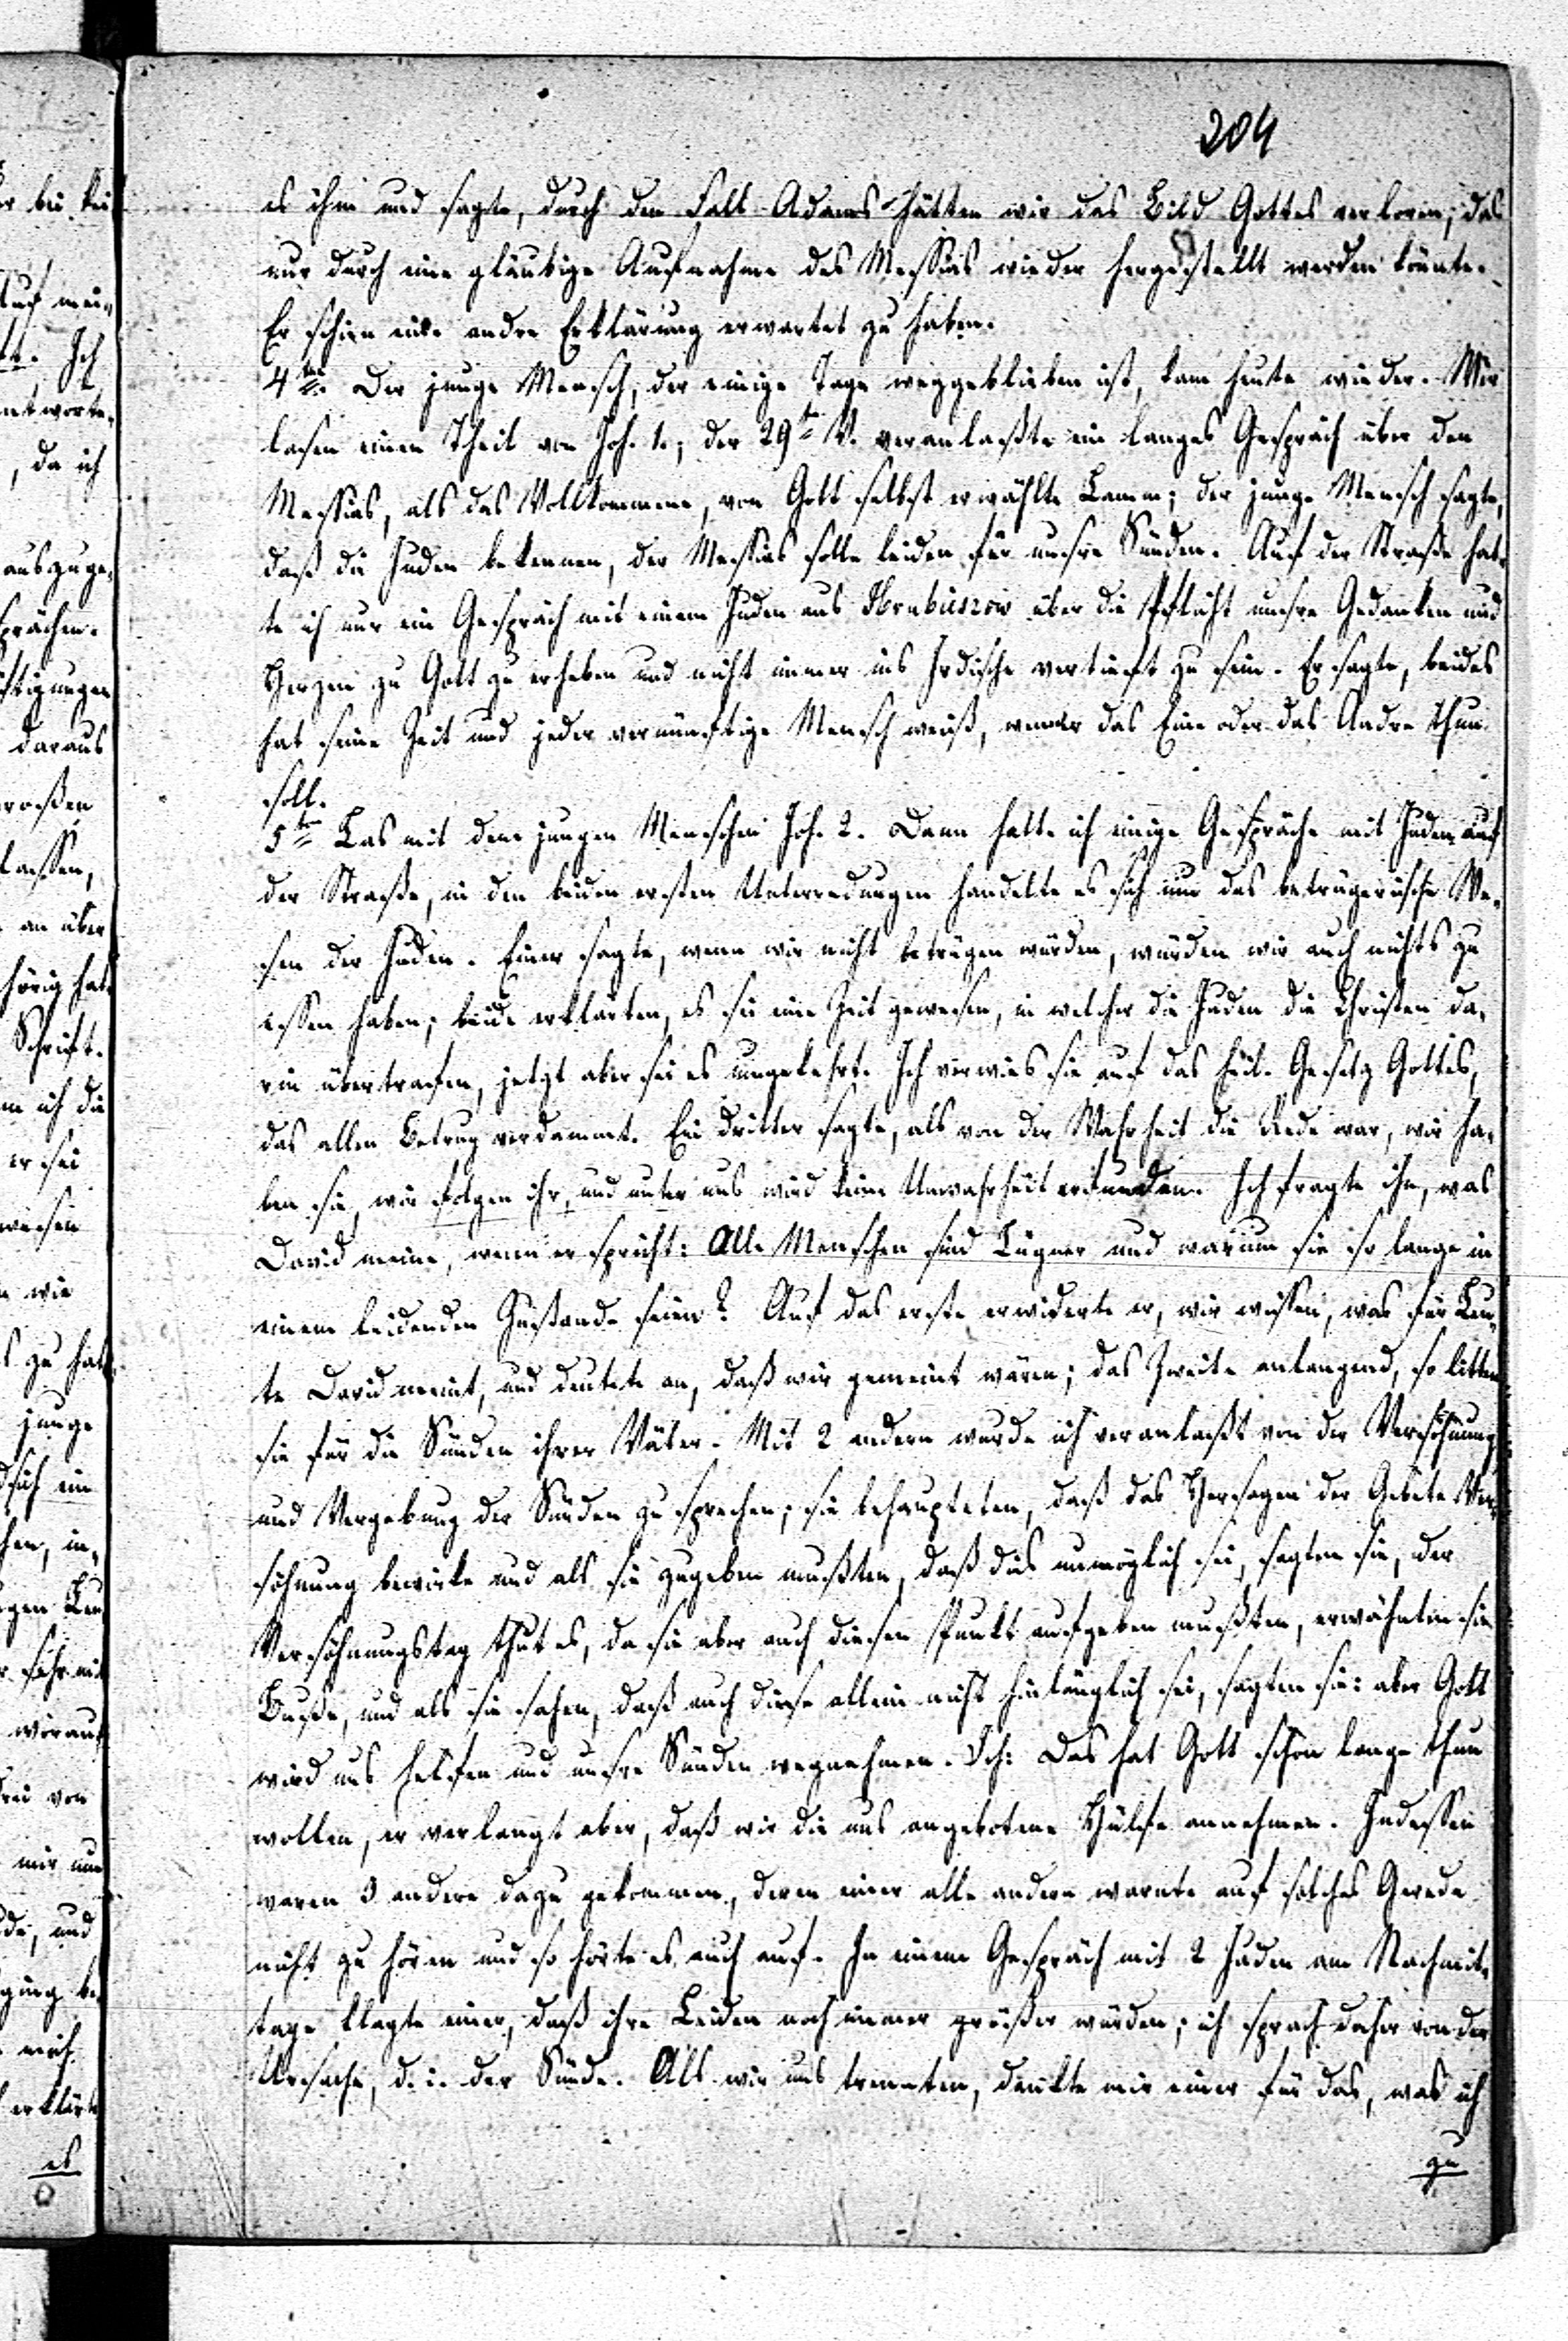 204
es ihm und sagte, durch den Fall Adams hätten wir das Bild Gottes verloren, das
nur durch eine gläubige Aufnahme des Messias wieder hergestellt werden könnte.
Er schien eine andre Erklärung erwartet zu haben.
4ten. Der junge Mensch, der einige Tage weggeblieben ist, kam heute wieder. Wir
lasen einen Theil von Joh. 1.; der 29te V. veranlaßte ein langes Gespräch über den
Messias, als das Vollkommene, von Gott selbst erwählte Lamm; der junge Mensch sagte,
daß die Juden bekennen, der Messias solle leiden für unsre Sünden. Auf der Straße hat-
te ich nur ein Gespräch mit einem Juden aus Hrubieszow über die Pflicht unsre Gedanken und
Herzen zu Gott zu erheben und nicht immer ins Irdische vertieft zu sein. Er sagte, beides
hat seine Zeit und jeder vernünftige Mensch weiß, wenn er das Eine oder das Andre thun
soll.
5ten Las mit dem jungen Menschen Joh. 2. Dann hatte ich einige Gespräche mit Juden auf
der Straße, in den beiden ersten Unterredungen handelte es sich um das betrügerische We-
sen der Juden. Einer sagte, wenn wir nicht betrügen würden, würden wir auch nichts zu
essen haben; beide erklärten, es sei eine Zeit gewesen, in welcher die Juden die Christen da-
rin übertrafen, jetzt aber sei es umgekehrt. Ich verwies sie auf das heil. Gesetz Gottes,
das allen Betrug verdammt. Ein dritter sagte, als von der Wahrheit die Rede war, wir ha-
ben sie, wir folgen ihr, und unter uns wird keine Unwahrheit erfunden. Ich fragte ihn, was
David meine, wenn er spricht: Alle Menschen sind Lügner und warum sie so lange in
einem leidenden Zustande seien? Auf das erste erwiderte er, wir wissen, was für Leu-
te David meint, und deutete an, daß wir gemeint wären; das Zweite anlangend, so litten
sie für die Sünden ihrer Väter. Mit 2 andern wurde ich veranlaßt von der Versöhnung
und Vergebung der Sünden zu sprechen; sie behaupteten, daß das Hersagen der Gebete Ver-
söhnung bewirke und als sie zugeben mußten, daß dies unmöglich sei, sagten sie, der
Versöhnungstag thut es, da sie aber auch diesen Punkt aufgeben mußten, erwähnten sie
Buße, und als sie sahen, daß auch diese allein nicht hinlänglich sei, sagten sie: aber Gott
wird uns helfen und unsre Sünden wegnehmen. Ich: Das hat Gott schon lange thun
wollen, er verlangt aber, daß wir die uns angebotene Hülfe annehmen. Indessen
waren 3 andere dazu gekommen, deren einer alle andern warnte auf solches Gerede
nicht zu hören und so hörte es auch auf. In einem Gespräch mit 2 Juden am Nachmit-
tage klagte einer, daß ihre Leiden noch immer größer würden; ich sprach daher von der
Ursache, d. i. der Sünde. Als wir uns trennten, dankte mir einer für das, was ich
zu